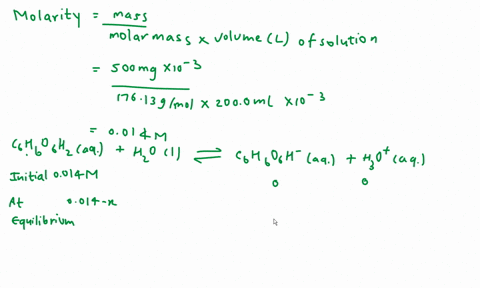 Molarity = mass
molar mass x volume (L) of solution
= 500mg x10⁻³
176.13g/mol x 200.0ml x10⁻³
= 0.014M
C6H6O6H2 (aq.) + H2O (l) ⇌ C6H6O6H⁻ (aq.) + H3O⁺ (aq.)
Initial 0.014M 0 0
At 0.014-x
Equilibrium